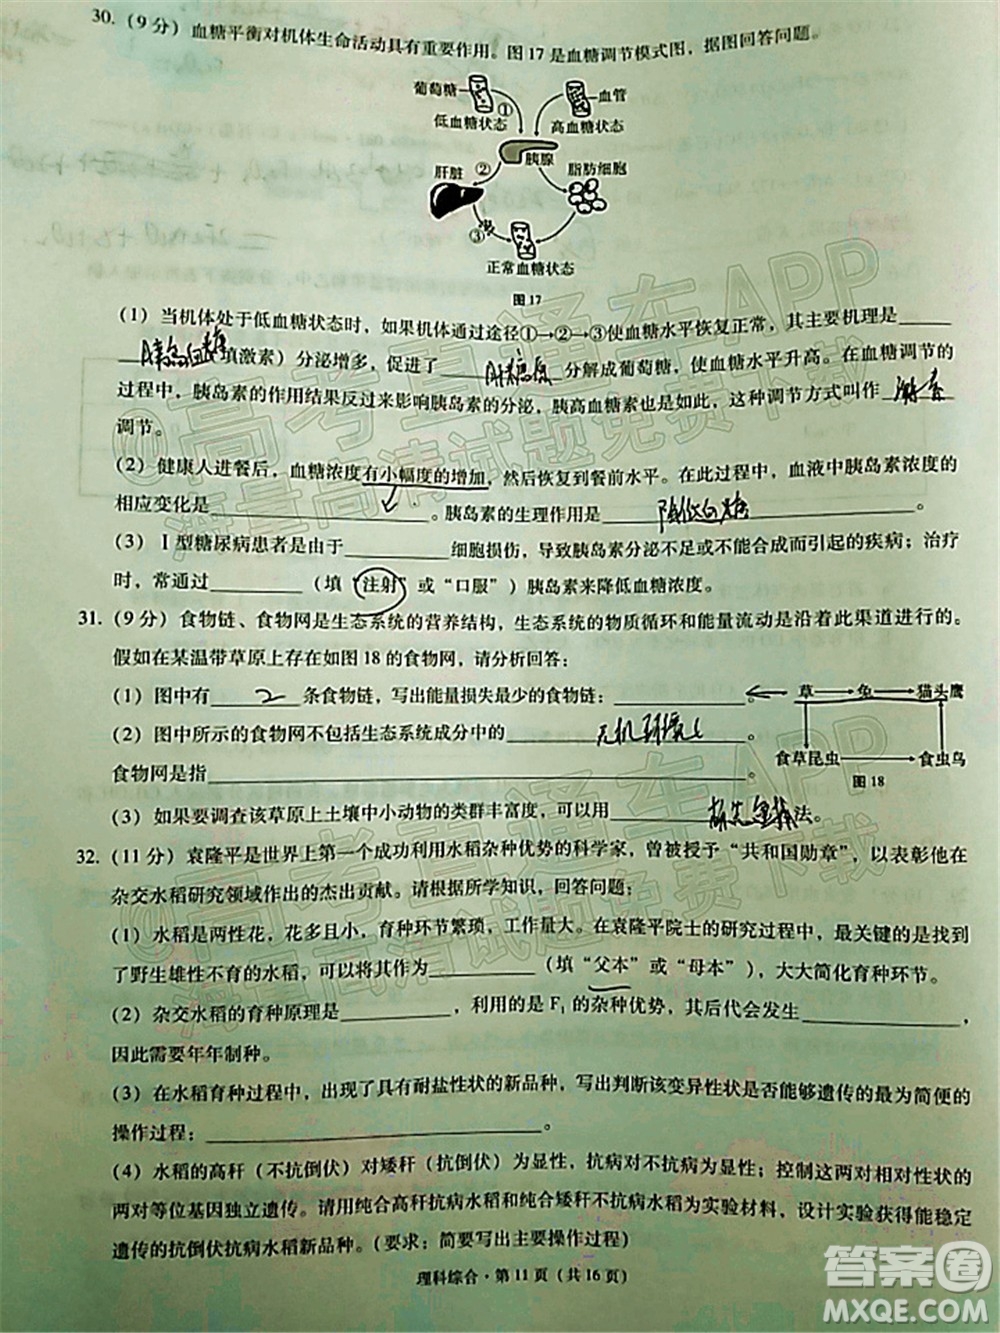 30.（9 分）血糖平衡对机体生命活动具有重要作用。图 17 是血糖调节模式图，据图回答问题。
葡萄糖 ① 血管
低血糖状态 高血糖状态
胰腺
肝脏 ② 脂肪细胞
③
正常血糖状态
图 17
（1）当机体处于低血糖状态时，如果机体通过途径①→②→③使血糖水平恢复正常，其主要机理是____
____填激素）分泌增多，促进了____分解成葡萄糖，使血糖水平升高。在血糖调节的
过程中，胰岛素的作用结果反过来影响胰岛素的分泌，胰高血糖素也是如此，这种调节方式叫作 激素
调节。
（2）健康人进餐后，血糖浓度有小幅度的增加，然后恢复到餐前水平。在此过程中，血液中胰岛素浓度的
相应变化是____。胰岛素的生理作用是 降低血糖 。
（3）Ⅰ型糖尿病患者是由于____细胞损伤，导致胰岛素分泌不足或不能合成而引起的疾病；治疗
时，常通过____（填“注射”或“口服”）胰岛素来降低血糖浓度。
31.（9 分）食物链、食物网是生态系统的营养结构，生态系统的物质循环和能量流动是沿着此渠道进行的。
假如在某温带草原上存在如图 18 的食物网，请分析回答：
（1）图中有 2 条食物链，写出能量损失最少的食物链：____。
草 → 兔 → 猫头鹰
（2）图中所示的食物网不包括生态系统成分中的____。
食草昆虫 → 食虫鸟
食物网是指____。
图 18
（3）如果要调查该草原上土壤中小动物的类群丰富度，可以采用____法。
32.（11 分）袁隆平是世界上第一个成功利用水稻杂种优势的科学家，曾被授予“共和国勋章”，以表彰他在
杂交水稻研究领域作出的杰出贡献。请根据所学知识，回答问题：
（1）水稻是两性花，花多且小，育种环节繁琐，工作量大。在袁隆平院士的研究过程中，最关键的是找到
了野生雄性不育的水稻，可以将其作为____（填“父本”或“母本”），大大简化育种环节。
（2）杂交水稻的育种原理是____，利用的是 F₁ 的杂种优势，其后代会发生____，
因此需要年年制种。
（3）在水稻育种过程中，出现了具有耐盐性状的新品种，写出判断该变异性状是否能够遗传的最为简便的
操作过程：____。
（4）水稻的高秆（不抗倒伏）对矮秆（抗倒伏）为显性，抗病对不抗病为显性；控制这两对相对性状的
两对等位基因独立遗传。请用纯合高秆抗病水稻和纯合矮秆不抗病水稻为实验材料，设计实验获得能稳定
遗传的抗倒伏抗病水稻新品种。（要求：简要写出主要操作过程）
理科综合·第 11 页（共 16 页）
@高考直通车APP
海量高清试题免费下载
@高考直通车APP
海量高清试题免费下载
答案圈
MXQE.COM